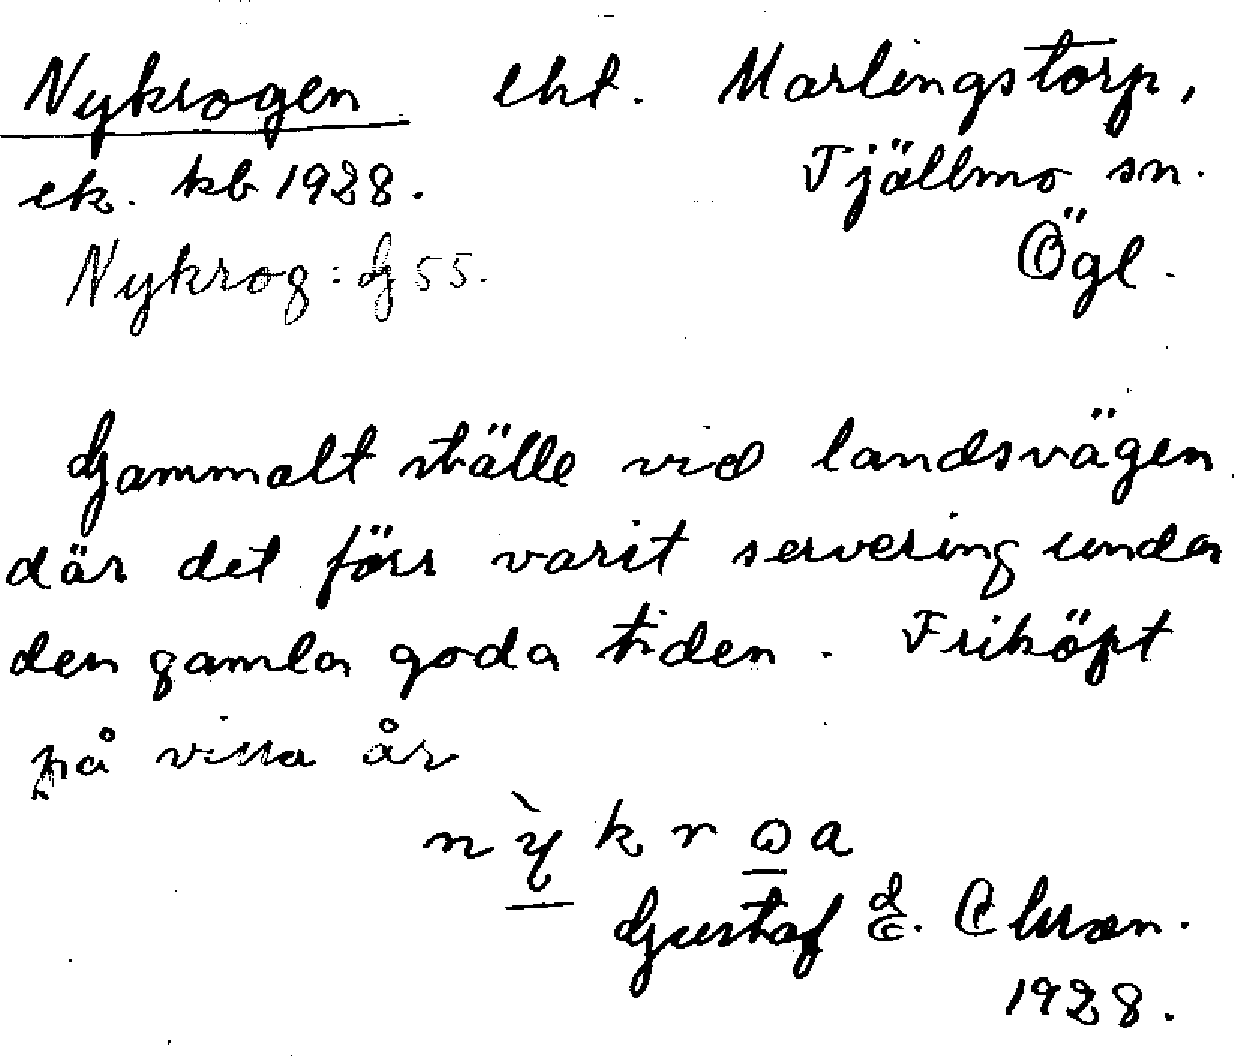 Nykrogen lht. Marlingstorp,
ek. kb 1928. Tjällmo sn.
Nykrog: G 55. Ögl.
Gammalt ställe vid landsvägen
där det förr varit servering under
den gamla goda tiden. Friköpt
på vissa år
nỳkroa
Gustaf E. Olsson.
1928.